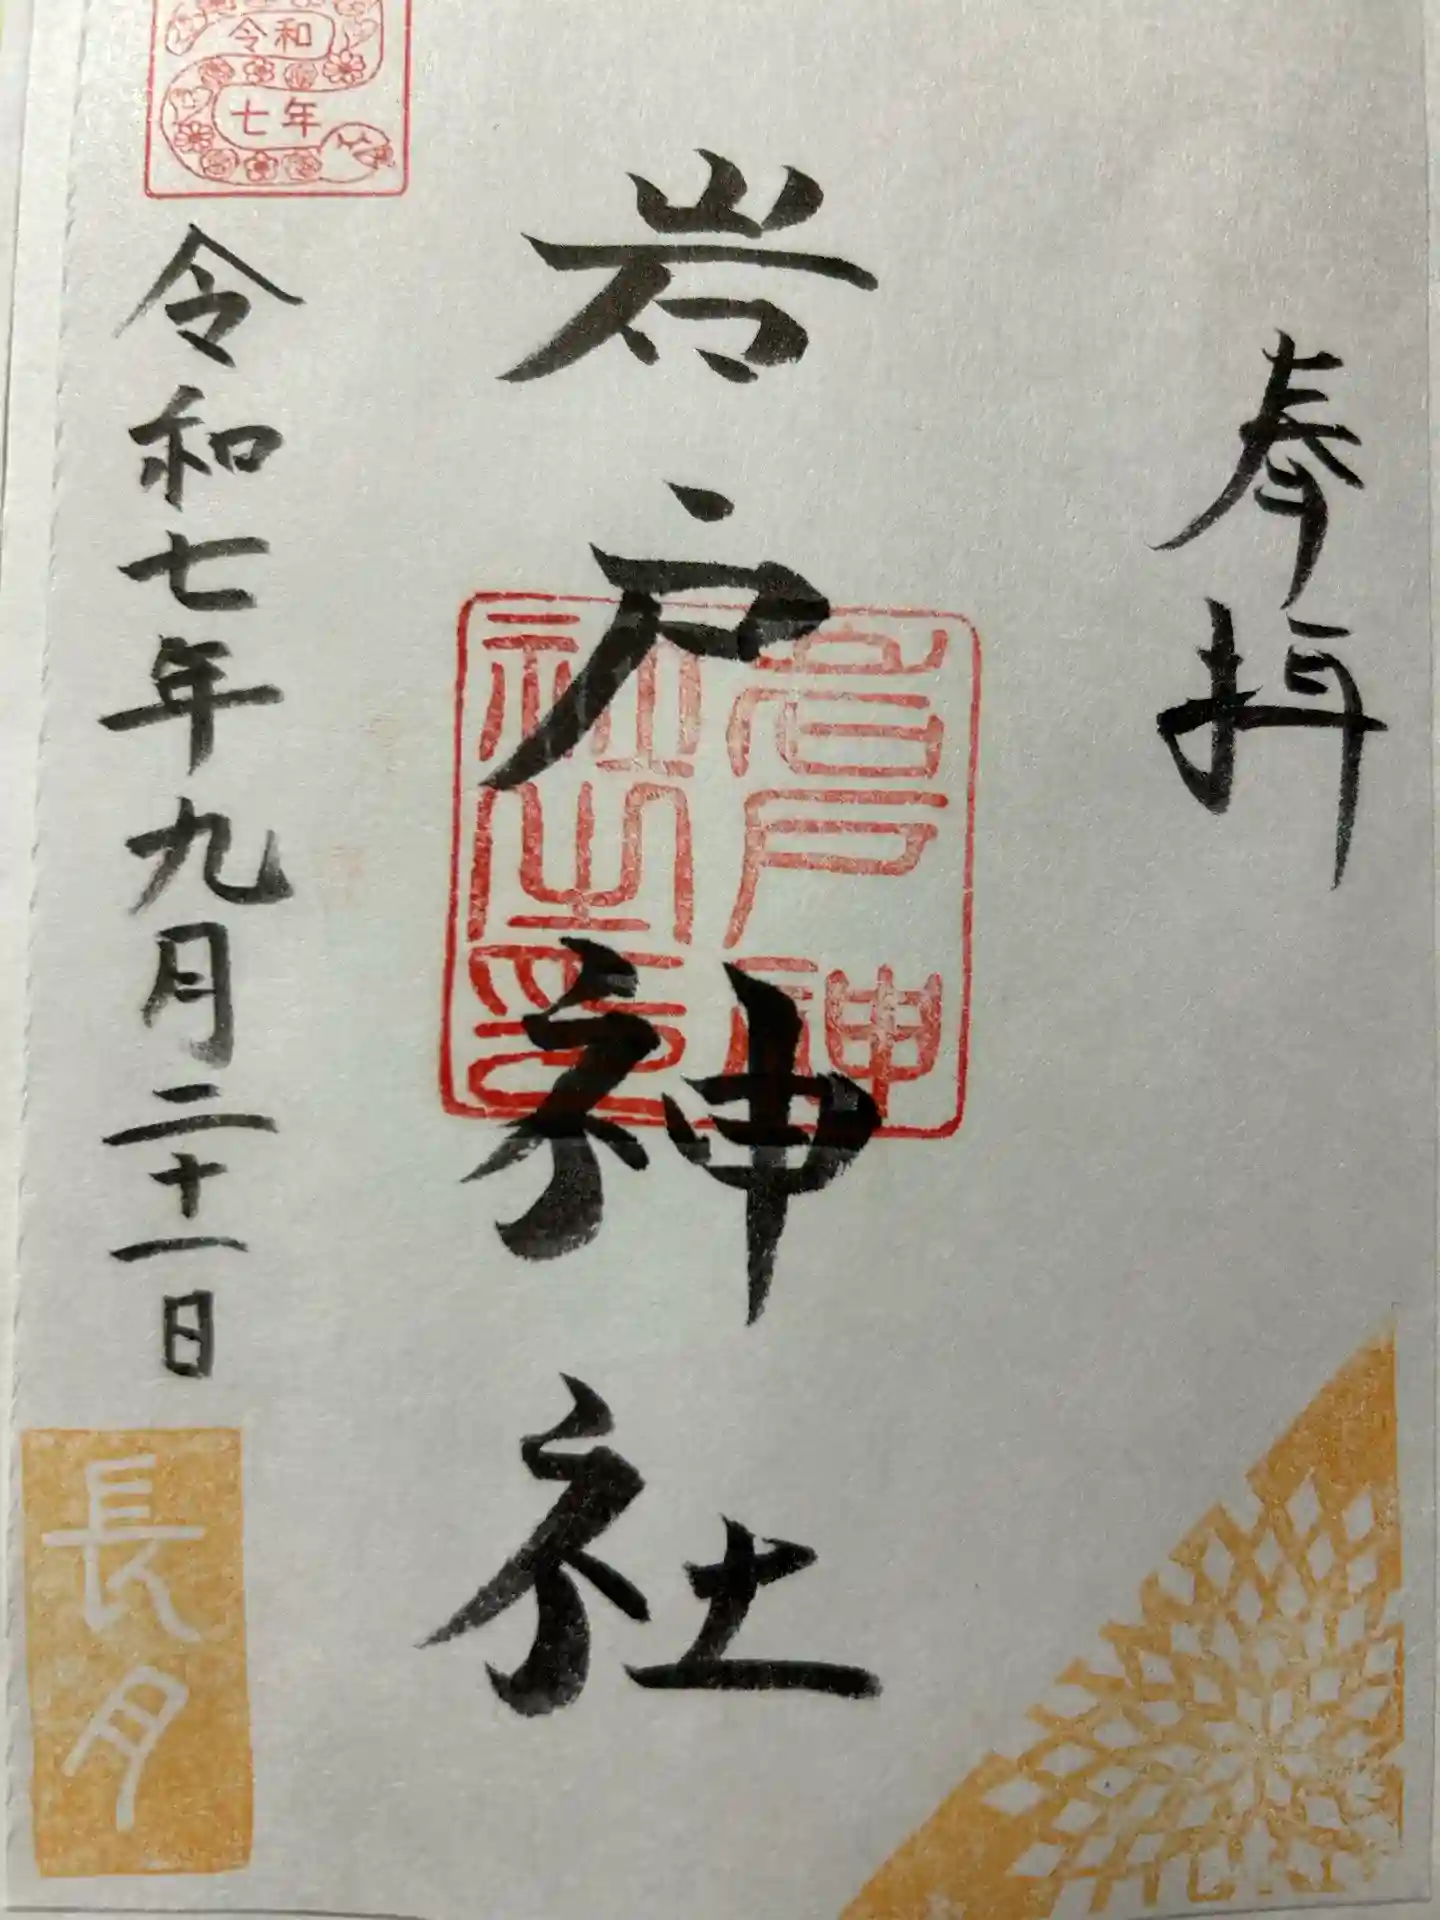 奉拝
岩戸神社
岩戸神
社之印
令和
七年
令和七年九月二十一日
長月